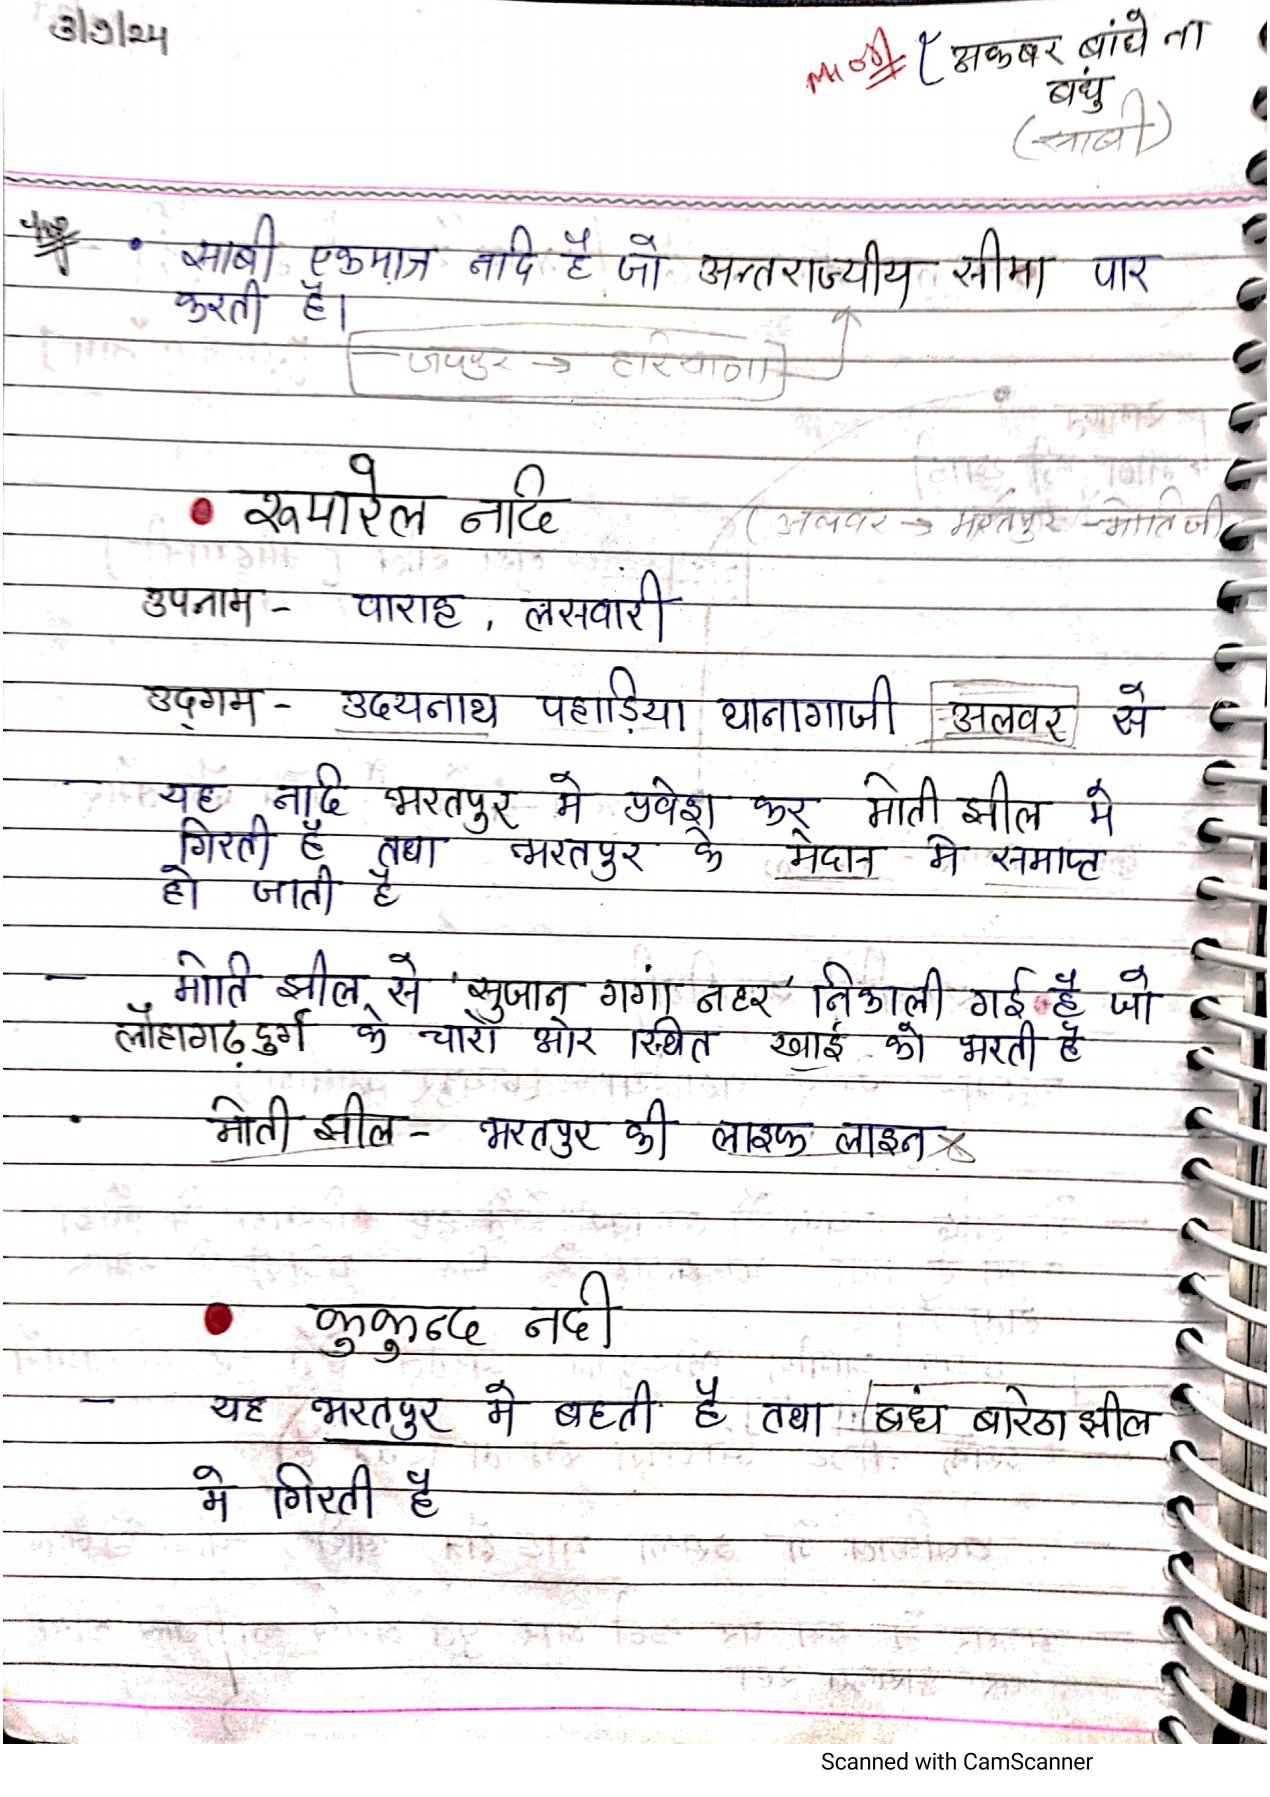 3/9/24
{ अकबर बांधे ना
बंधु
(साबी)
• साबी एकमात्र नदि है जो अन्तराज्यीय सीमा पार
करती है।
जयपुर → हरियाणा
• रूपारेल नदि
(अलवर → भरतपुर - मोतिजी
उपनाम - वाराह, लसवारी
उद्गम - उदयनाथ पहाड़िया थानागाजी अलवर से
- यह नदि भरतपुर मे प्रवेश कर मोती झील मे
गिरती है तथा भरतपुर के मेदान मे समाप्त
हो जाती है
- मोति झील से 'सुजान गगां नहर' निकाली गई है जो
लौहागढ़ दुर्ग के चारों ओर स्थित खाई को भरती है
• मोती झील - भरतपुर की लाइफ लाइन
• कुकुन्द नदी
- यह भरतपुर मे बहती है तथा बंध बारेठा झील
मे गिरती है
Scanned with CamScanner